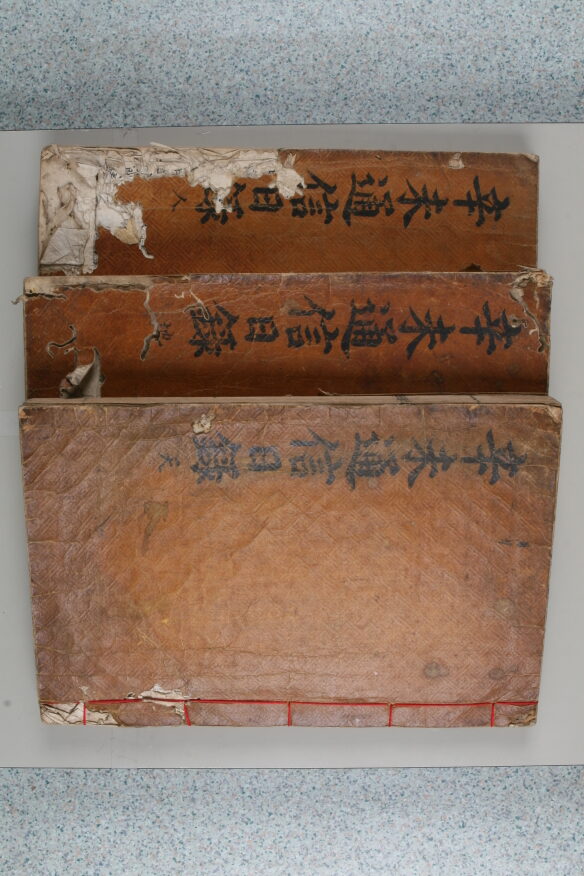 辛未通信日録 人
辛未通信日録 地
辛未通信日録 天